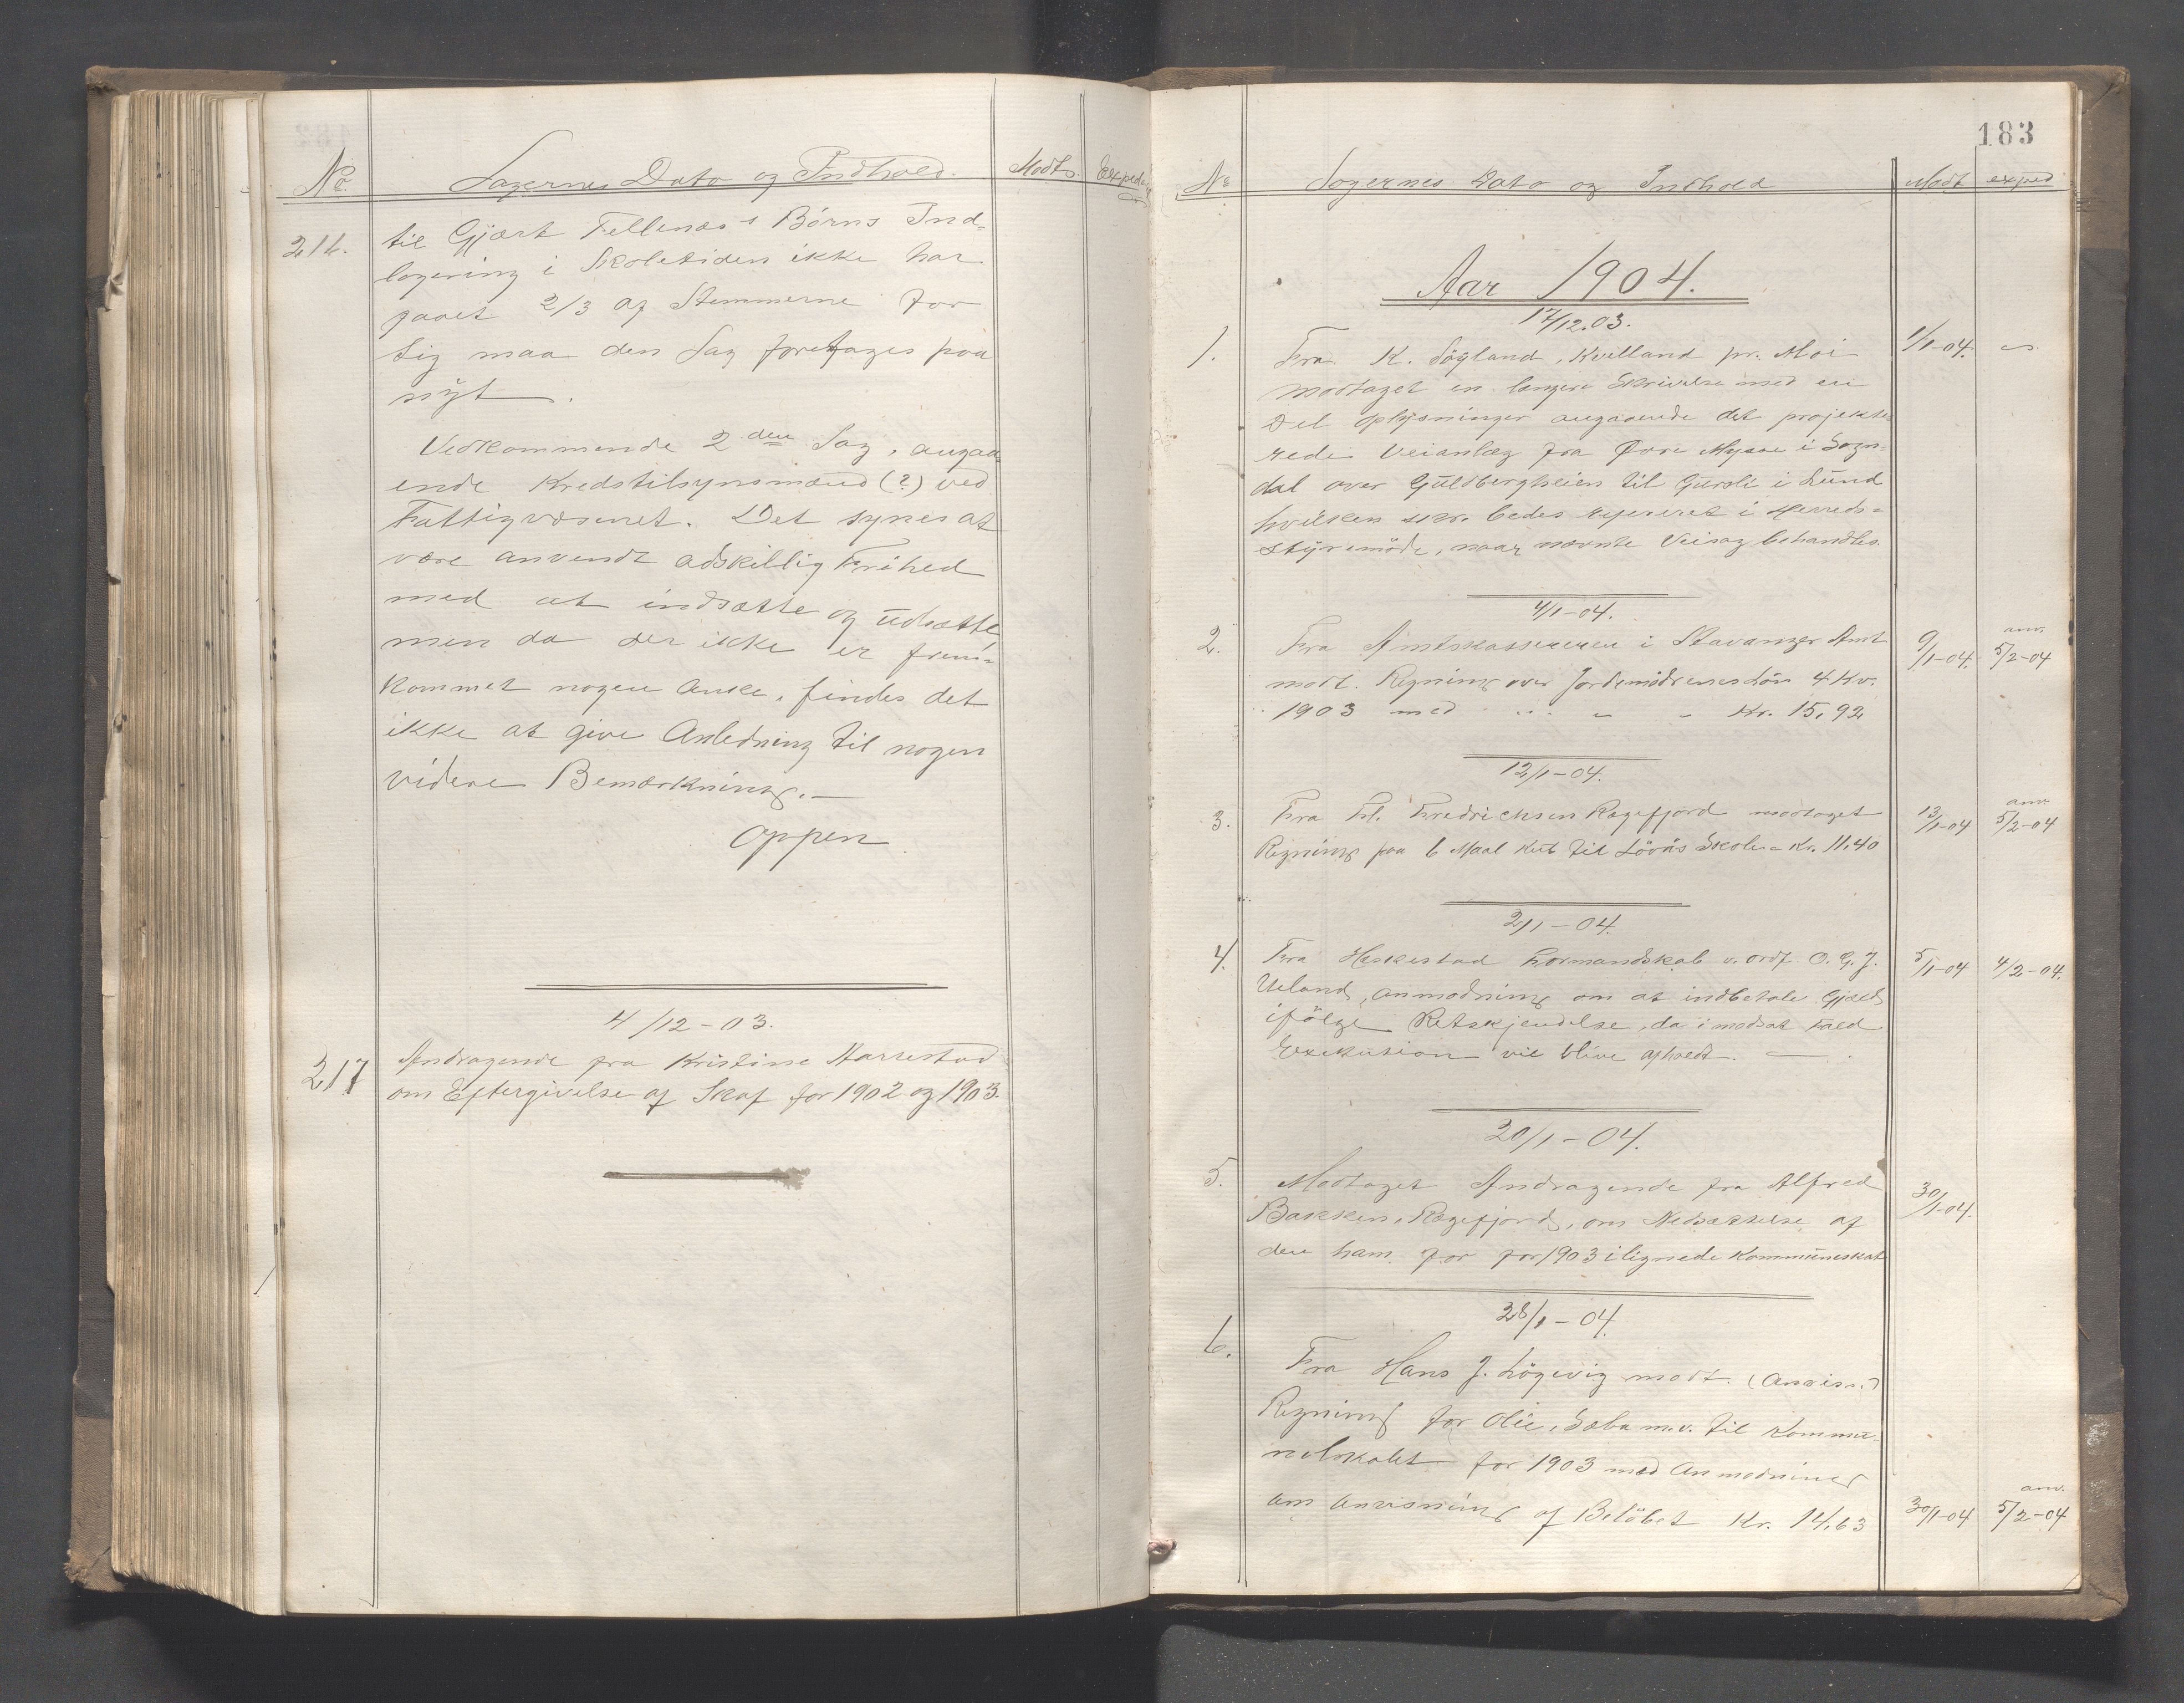 No. Sagernes Dato og Indhold. Modt. Exped.
216. til Gjært Fellenæs's Børns Ind-
logering i Skoletiden ikke har
faaet 2/3 af Stemmerne for
sig maa den Sag foretages paa
nyt.
Vedkommende 2den Sag, angaa-
ende Kredstilsynsmænd (?) ved
Fattigvæsenet. Det synes at
være anvendt adskillig Frihed
med at indsætte og udsætte
men da der ikke er frem-
kommet nogen Anke, findes det
ikke at give Anledning til nogen
videre Bemærkning.—
Oppen
4/12-03.
217 Andragende fra Kristine Aarrestad
om Eftergivelse af Skat for 1902 og 1903.
183
No Sagernes Dato og Indhold Modt exped
Aar 1904.
17/12.03.
1. Fra K. Søyland, Kvelland pr. Moi 1/1-04.
modtaget en længere Skrivelse med en
Del Oplysninger angaaende det projekte-
rede Veianlæg fra Øvre Mysse i Sogn-
dal over Guldbergheien til Gursli i Lund
hvilken skr. bedes refereret i Herreds-
styremöde, naar nævnte Veisag behandles.
4/1-04.
2. Fra Amtskassereren i Stavanger Amt 9/1-04. anv. 5/2-04
modt. Regning over Jordemödrenes Lön 4 Kv.
1903 med Kr. 15,92
12/1-04.
3. Fra Fredrichsen Ragefjord modtaget 13/1-04 anv. 5/2-04
Regning paa 6 Maal Kul til Skole - Kr. 11.40
2/1-04.
4. Fra Heskestad Formandskab v. ordf. O. G. J. 5/1-04 4/2-04.
Ueland, Anmodning om at indbetale Gjæld
ifölge Retskjendelse, da i modsat Fald
Exekution vil blive afholdt.—
20/1-04.
5. Modtaget Andragende fra Alfred 30/1-04.
Bakken, Ragefjord, om Nedsættelse af
den ham for for 1903 ilignede Kommuneskat
28/1-04.
6. Fra Hans J. Lögevig modt. (Anvisn.)
Regning for Olie, Sæbe m.v. til Kommu-
nelokalet for 1903 med Anmodning
om Anvisning af Belöbet Kr. 14,63 30/1-04 anv. 5/2-04